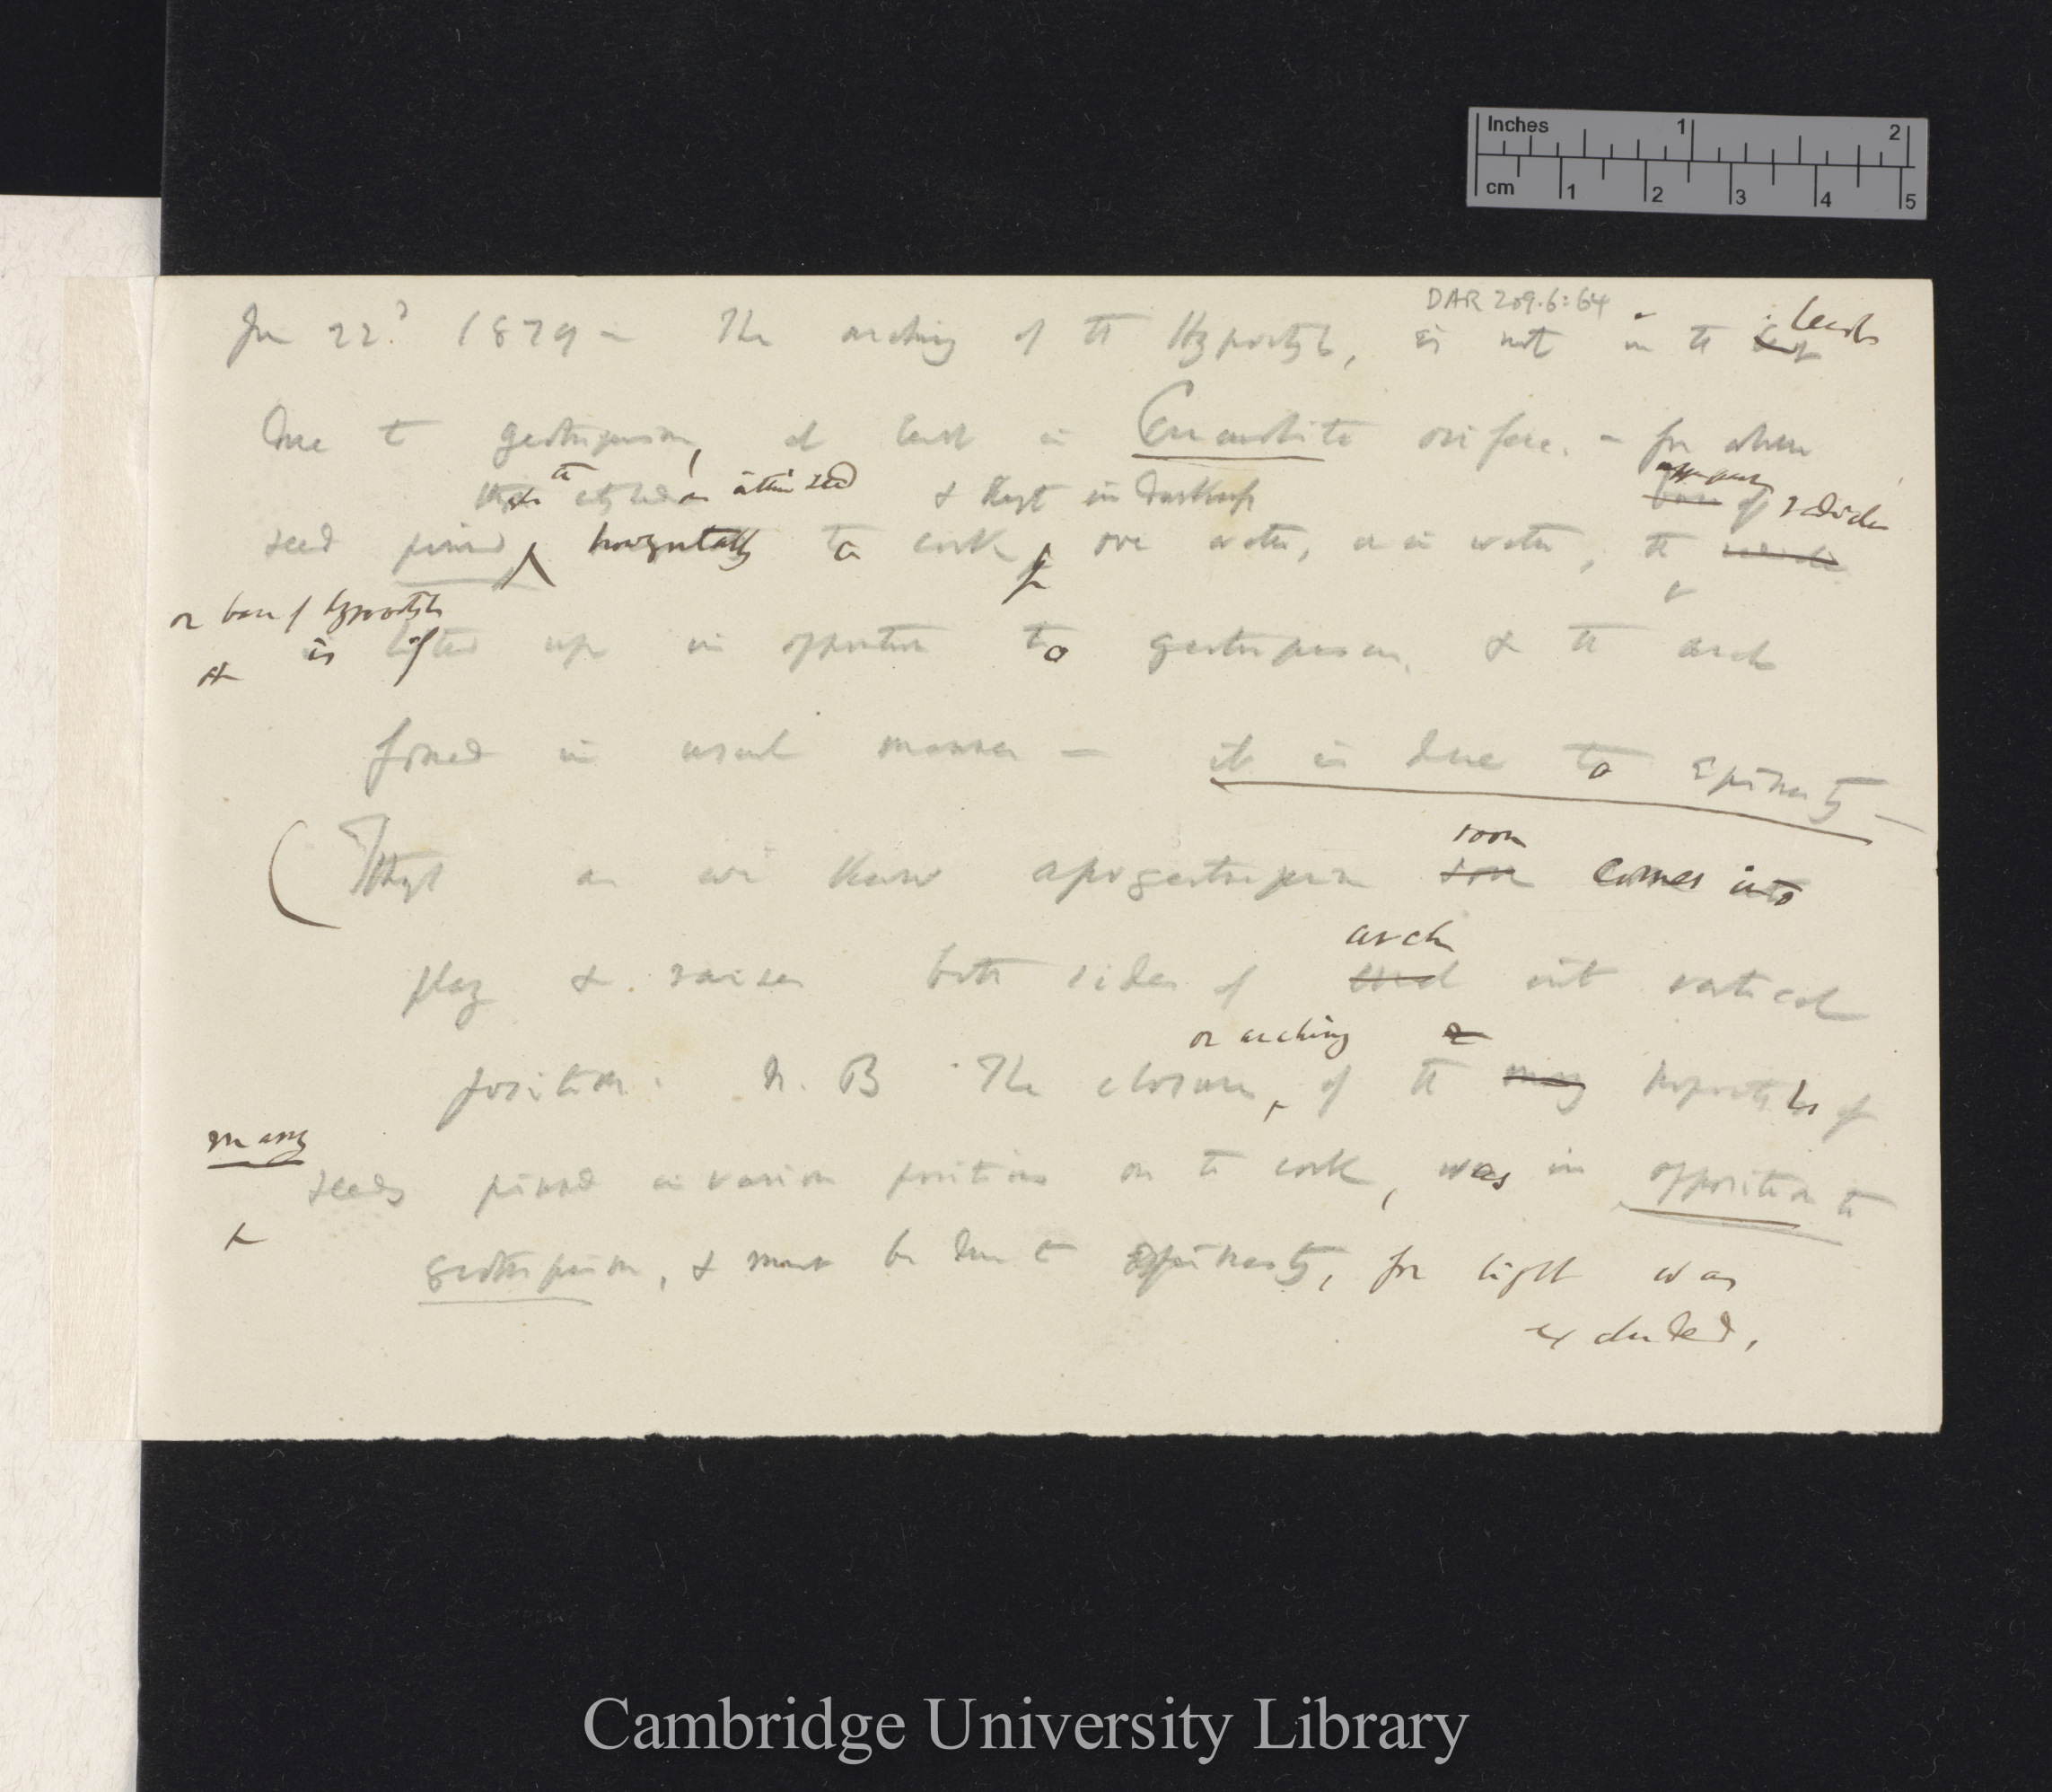 Inches 1 2
cm 1 2 3 4 5
DAR 209.6:64
Jan 22? 1879 — The arching of the Hypocotyl, is not in the least
due to geotropism, at least in Cucurbita ovifera. — for when
the & kept in darkness of radicle
seed pinned horizontally to cork, over water, or in water, the
or base of hypocotyl
is lifted up in opposition to geotropism, & the arch
formed in usual manner — it is due to Epinasty —
soon
(Though as we know apogeotropism comes into
arch
play & raises both sides of into vertical
or arching
position. N.B The closure, of the many hypocotyls of
many
seeds pinned in various positions on the cork, was in opposition to
geotropism, & must be due to epinasty, for light was
excluded.
Cambridge University Library